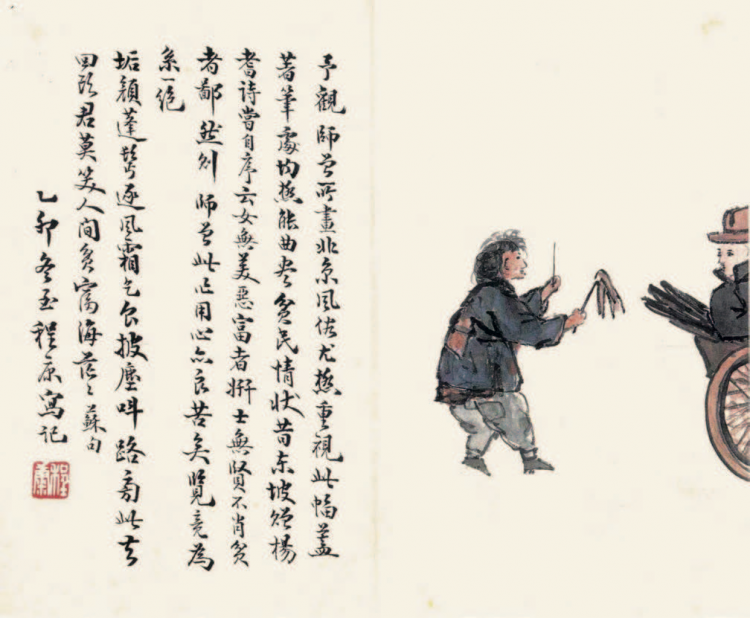 予觀師曾所畫北京風俗尤極重視此幅蓋
著筆處均極能曲尽貧民情狀昔東坡贈楊
耆詩嘗自序云女無美惡富者妍士無賢不肖貧
者鄙然則師曾此作用心亦良苦矣覽竟為
系一絕
垢顏蓬鬢逐風霜乞食披塵叫路旁此去
回頭君莫笑人間貧富海茫〻蘇句
乙卯冬至程康寫記
程康